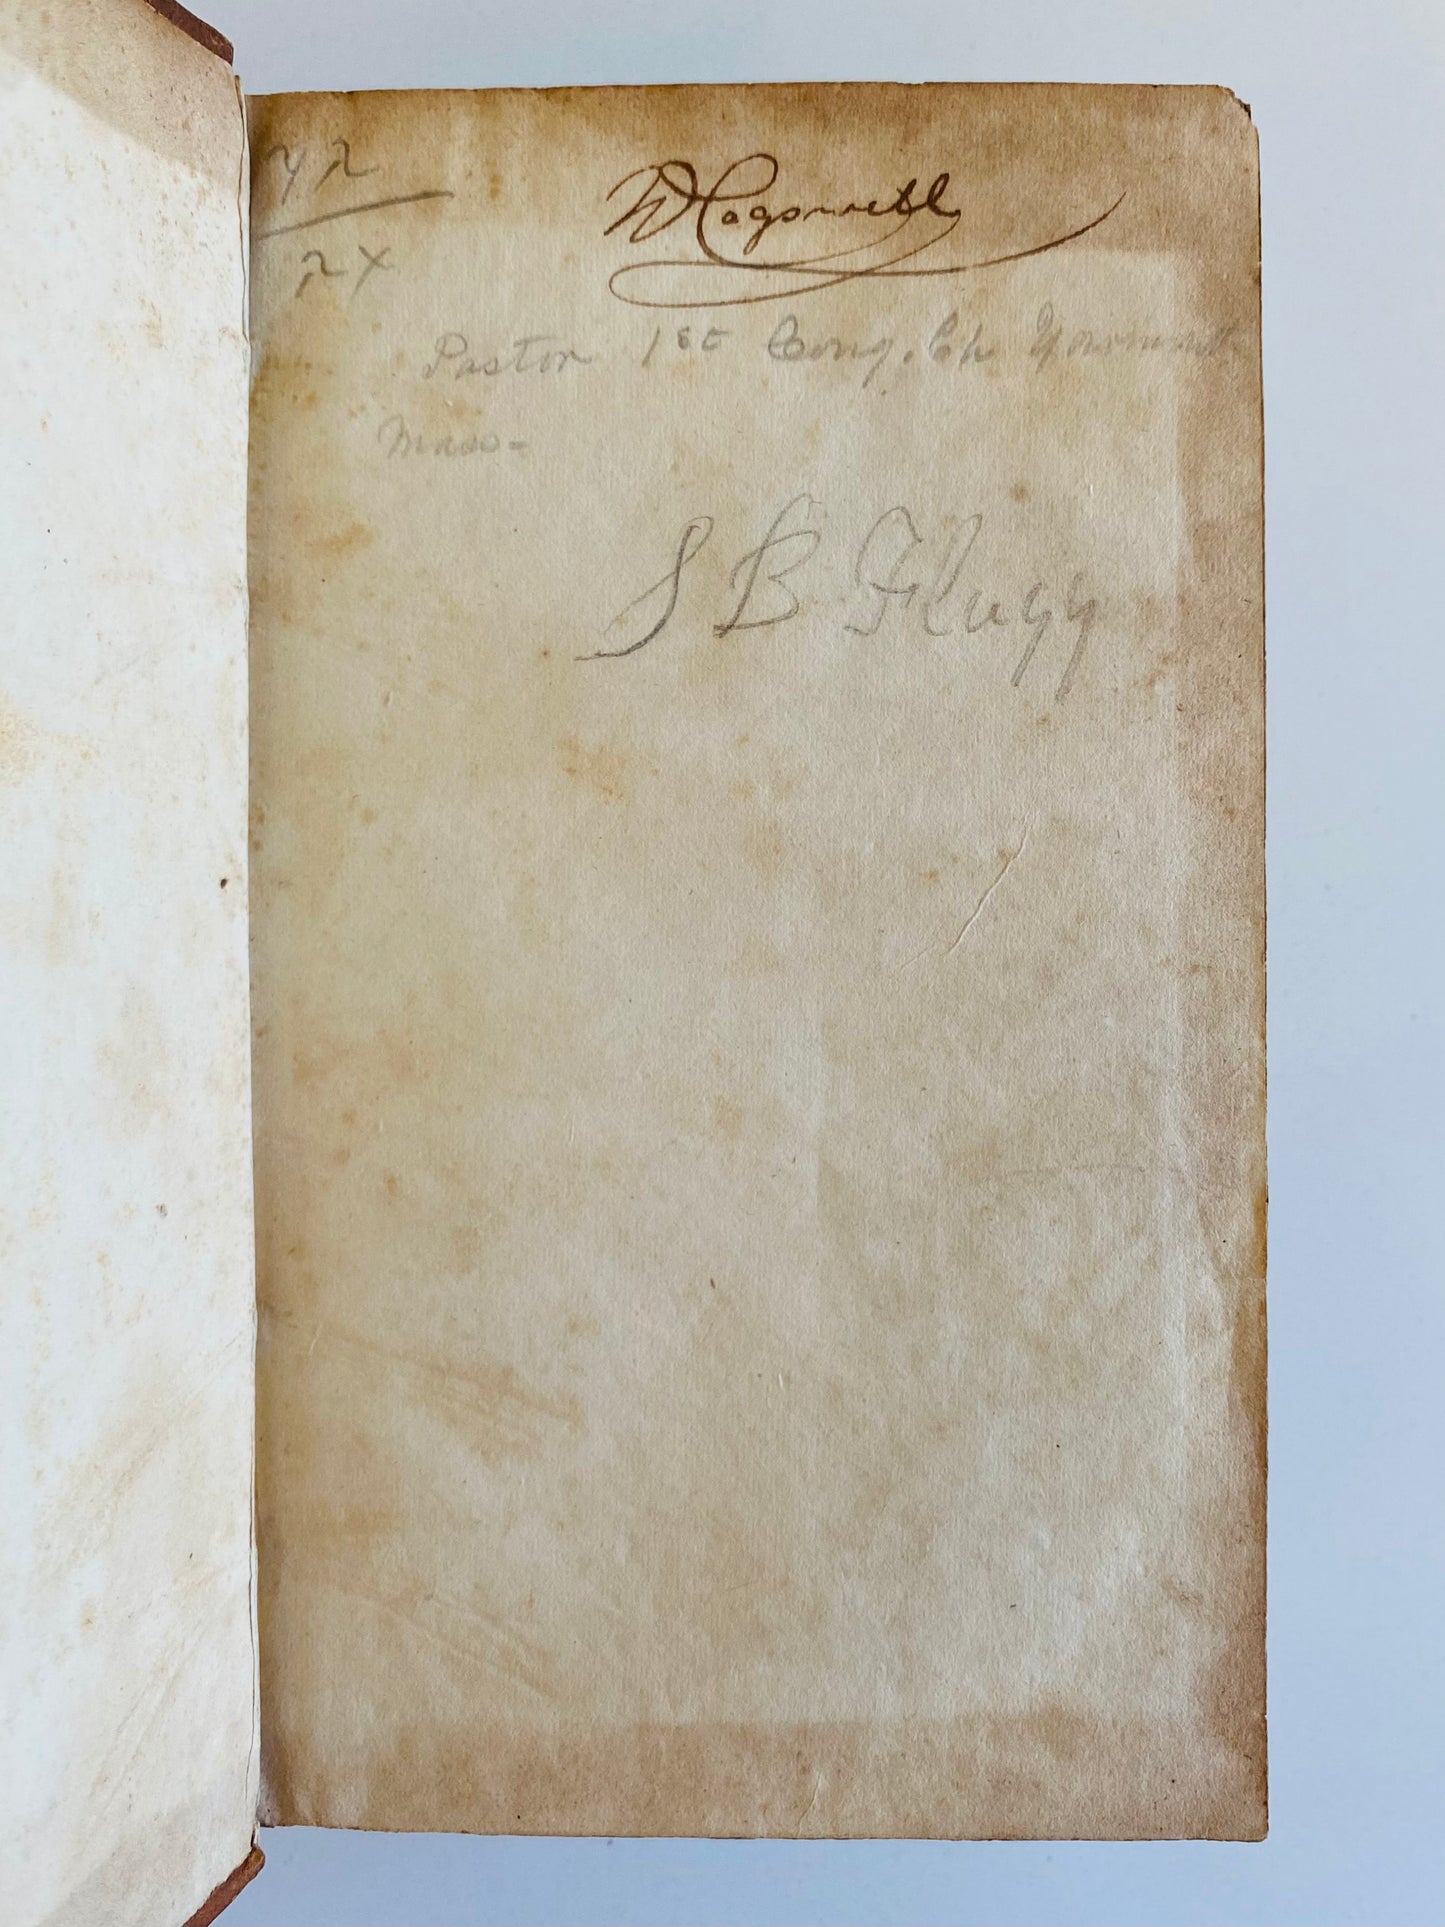 W Cogswell
Pastor 1st Cong. Ch Yarmouth
Mass-
S B Flugg